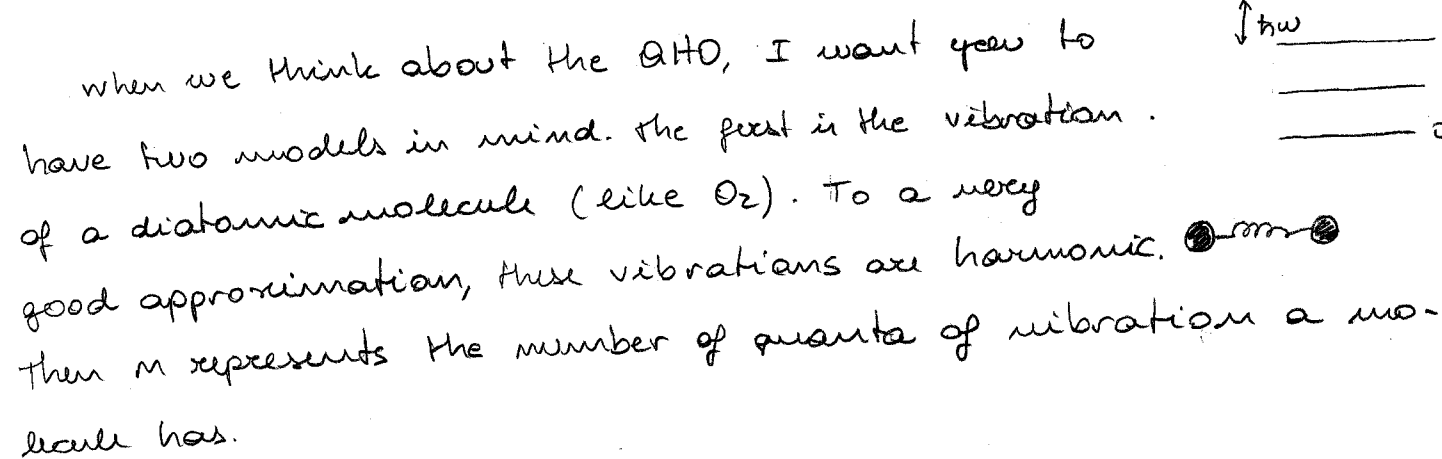 when we think about the QHO, I want you to
ħω
have two models in mind. the first is the vibration.
of a diatomic molecule (like O₂). To a very
good approximation, these vibrations are harmonic.
Then n represents the number of quanta of vibration a mo-
lecule has.